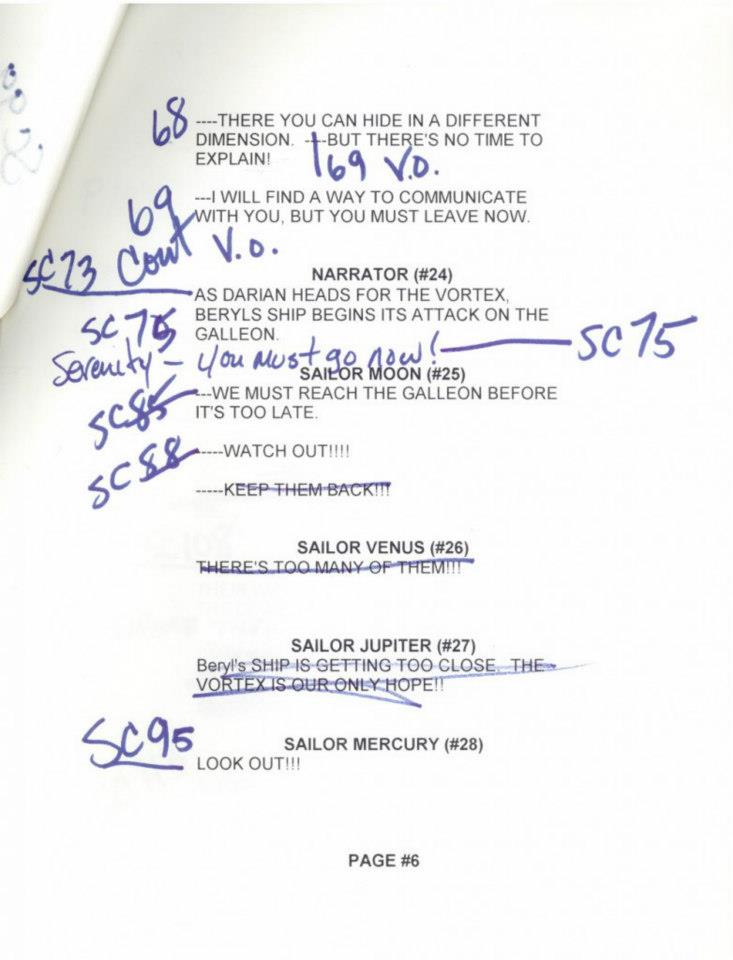 68 ----THERE YOU CAN HIDE IN A DIFFERENT
DIMENSION. ----BUT THERE'S NO TIME TO
EXPLAIN! 69 V.O.
69 ---I WILL FIND A WAY TO COMMUNICATE
WITH YOU, BUT YOU MUST LEAVE NOW.
SC73 Cont V.O.
NARRATOR (#24)
AS DARIAN HEADS FOR THE VORTEX,
BERYLS SHIP BEGINS ITS ATTACK ON THE
GALLEON.
SC75
Serenity - You must go now! SC75
SAILOR MOON (#25)
SC85 ---WE MUST REACH THE GALLEON BEFORE
IT'S TOO LATE.
SC88 -----WATCH OUT!!!!
-----KEEP THEM BACK!!!
SAILOR VENUS (#26)
THERE'S TOO MANY OF THEM!!!
SAILOR JUPITER (#27)
Beryl's SHIP IS GETTING TOO CLOSE. THE
VORTEX IS OUR ONLY HOPE!!
SC95 SAILOR MERCURY (#28)
LOOK OUT!!!
PAGE #6